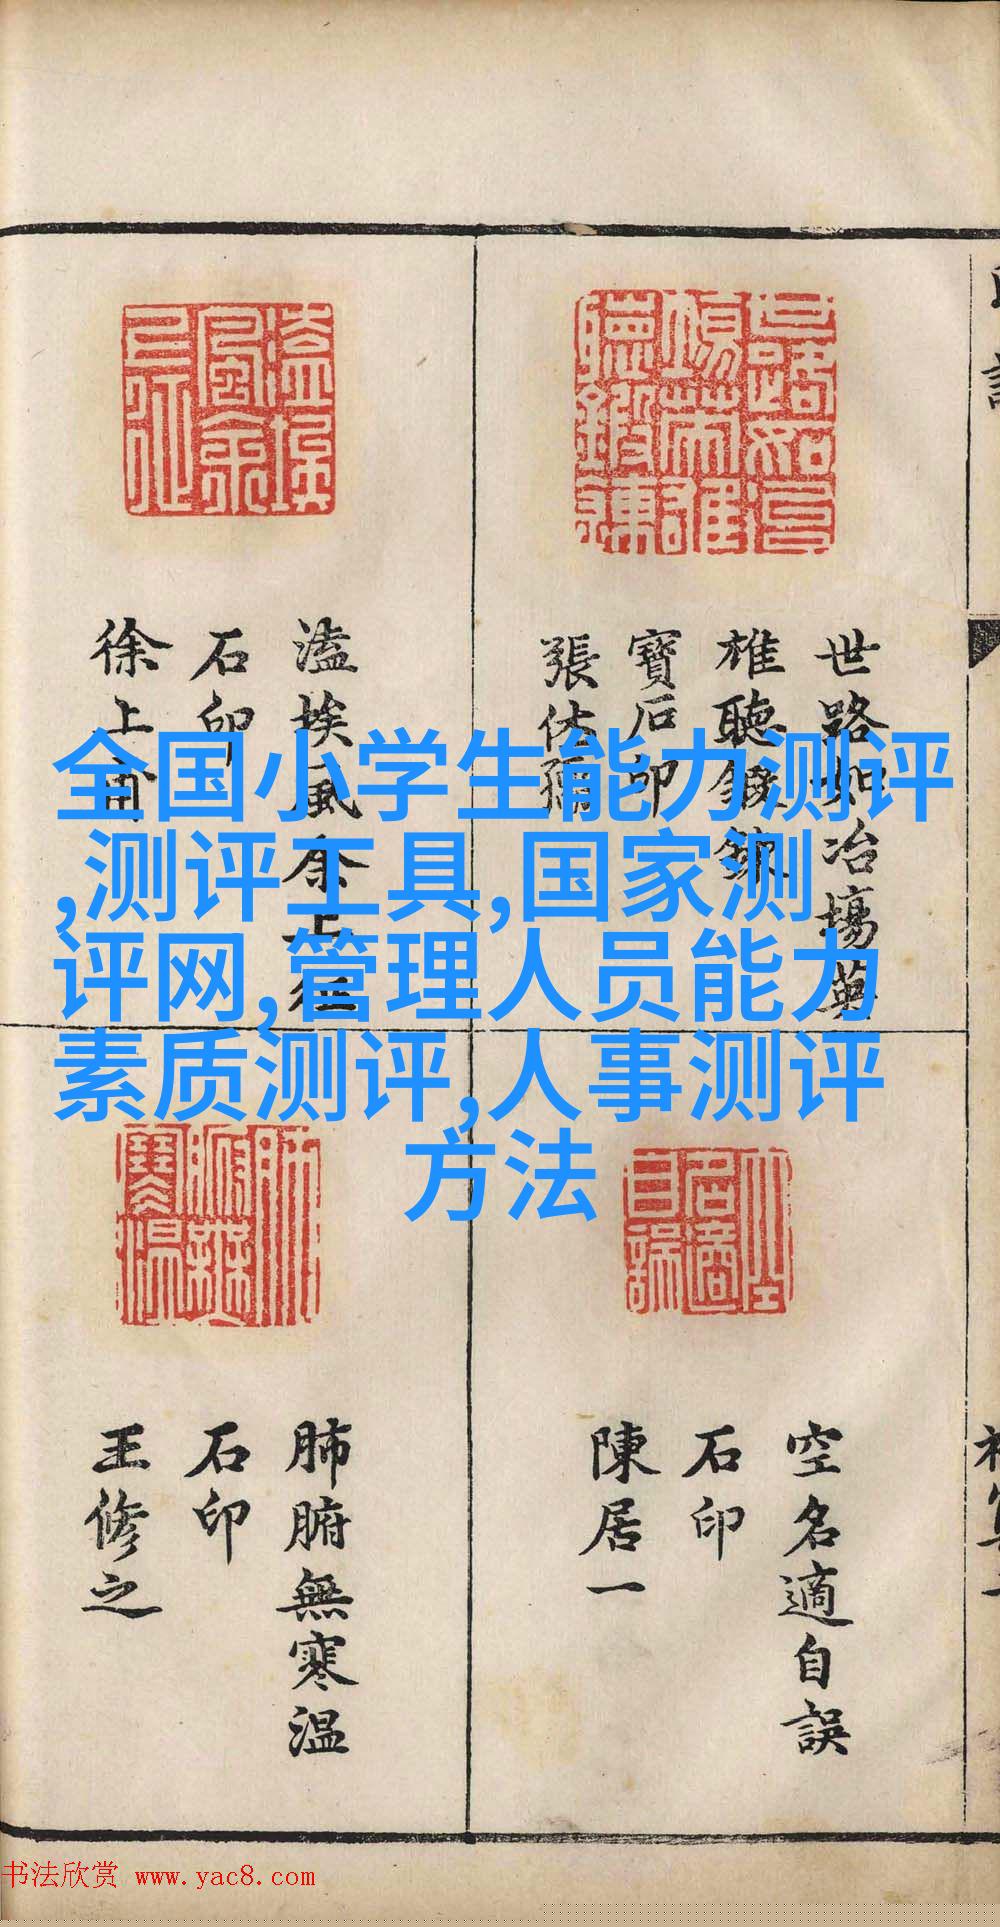 全国小学生能力测评
,测评工具,国家测
评网,管理人员能力
素质测评,人事测评
方法
世路如冶場英
雄聽鍛鍊
寶石印
張佐
溘埃風余上征
石印
徐上甫
空名適自誤
石印
陳居一
肺腑無寒温
石印
王修之
书法欣赏 www.yac8.com